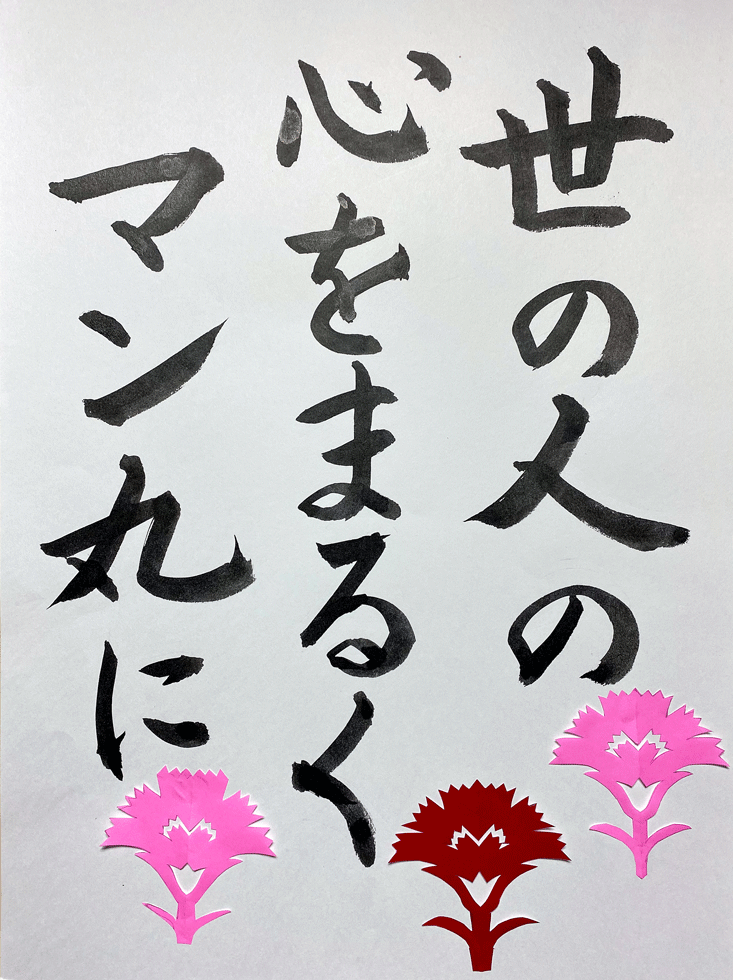 世の人の
心をまるく
マン丸に